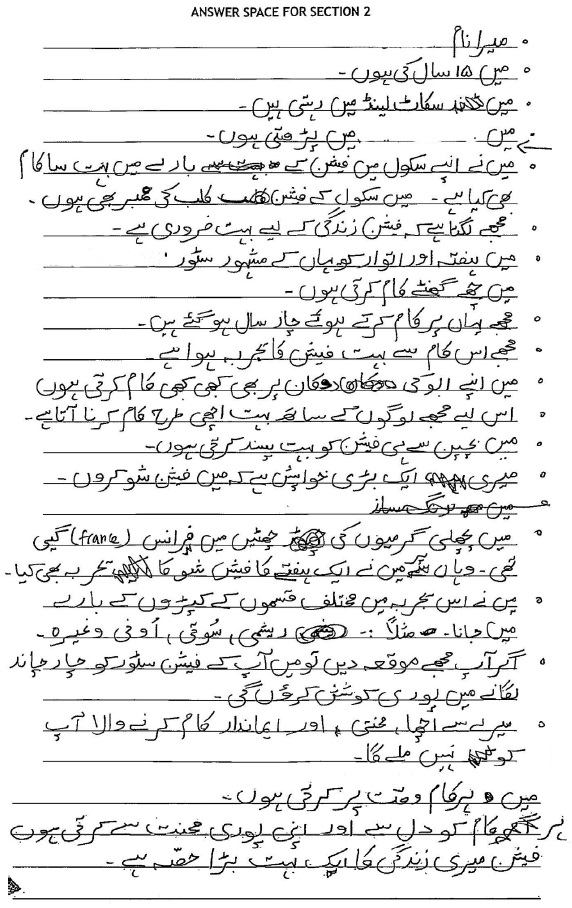 ANSWER SPACE FOR SECTION 2
• میرا نام
• میں ۱۵ سال کی ہوں۔
• میں سکاٹ لینڈ میں رہتی ہیں۔
• میں میں پڑھتی ہوں۔
• میں نے اپنے سکول میں فیشن کے بارے میں بہت سا کام
بھی کیا ہے۔ میں سکول کے فیشن کلب کی ممبر بھی ہوں۔
• مجھے لگتا ہے کہ فیشن زندگی کے لیے بہت ضروری ہے۔
• میں ہفتہ اور اتوار کو یہاں کے مشہور سٹور
میں چھ گھنٹے کام کرتی ہوں۔
• مجھے یہاں پر کام کرتے ہوئے چار سال ہو گئے ہیں۔
• مجھے اس کام سے بہت فیشن کا تجربہ ہوا ہے۔
• میں اپنے ابو کی دوکان پر بھی کبھی کبھی کام کرتی ہوں
• اس لیے مجھے لوگوں کے ساتھ بہت اچھی طرح کام کرنا آتا ہے۔
• میں بچپن سے ہی فیشن کو بہت پسند کرتی ہوں۔
• میری ایک بڑی خواہش ہے کہ میں فیشن شو کروں۔
• میں پچھلی گرمیوں کی چھٹیں میں فرانس (france) گیی
تھی۔ وہاں میں نے ایک ہفتے کا فیشن شو کا تجربہ بھی کیا۔
• میں نے اس تجربہ میں مختلف قسموں کے کپڑوں کے بارے
میں جانا۔ مثلاً :- ریشمی، سُوتی، اُونی وغیرہ۔
• اگر آپ مجھے موقعہ دیں تو میں آپ کے فیشن سٹور کو چار چاند
لگانے میں پوری کوشش کرؤں گی۔
• میرے سے اچھا، محنتی، اور ایماندار کام کرنے والا آپ
کو نہیں ملے گا۔
میں ہر کام وقت پر کرتی ہوں۔
ہر کام کو دل سے اور اپنی پوری محنت سے کرتی ہوں
فیشن میری زندگی کا ایک بہت بڑا حصّہ ہے۔